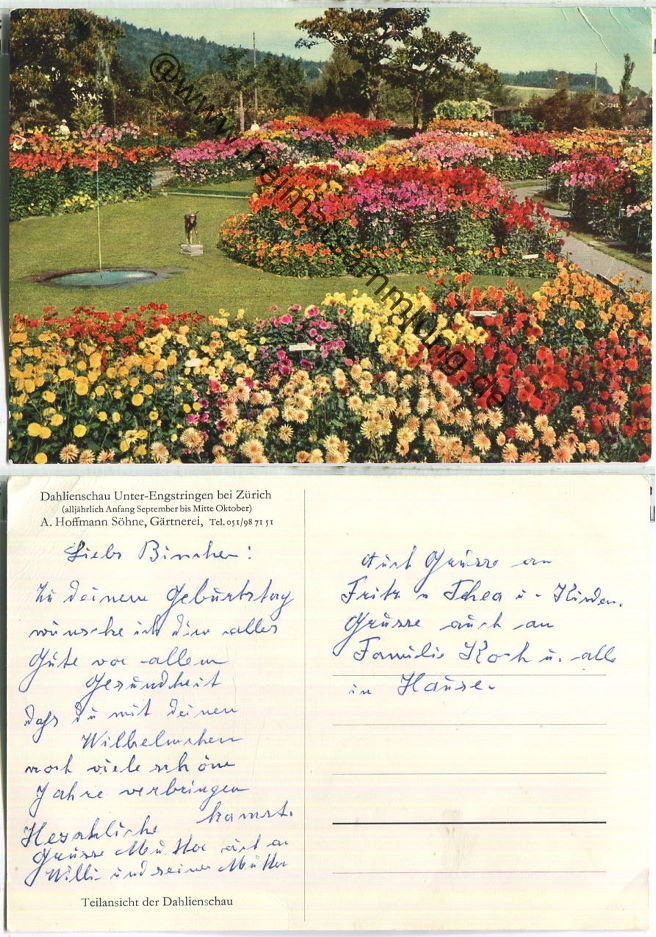 @www.heimatsammlung.de
Dahlienschau Unter-Engstringen bei Zürich
(alljährlich Anfang September bis Mitte Oktober)
A. Hoffmann Söhne, Gärtnerei, Tel. 051/98 71 51
Liebs
Zu deinem Geburtstag
wünsche ich dir alles
Gute vor allem
Gesundheit
daß du mit deinen
Wilhelmchen
noch viele schöne
Jahre verbringen
kannst.
Herzhliche
Grüsse Mutter
Willi und seiner Mutter
Teilansicht der Dahlienschau
Auch Grüsse an
Fritz u Thea u. Kinder.
Grüsse auch an
Familie Koch u. alle
in Hause.